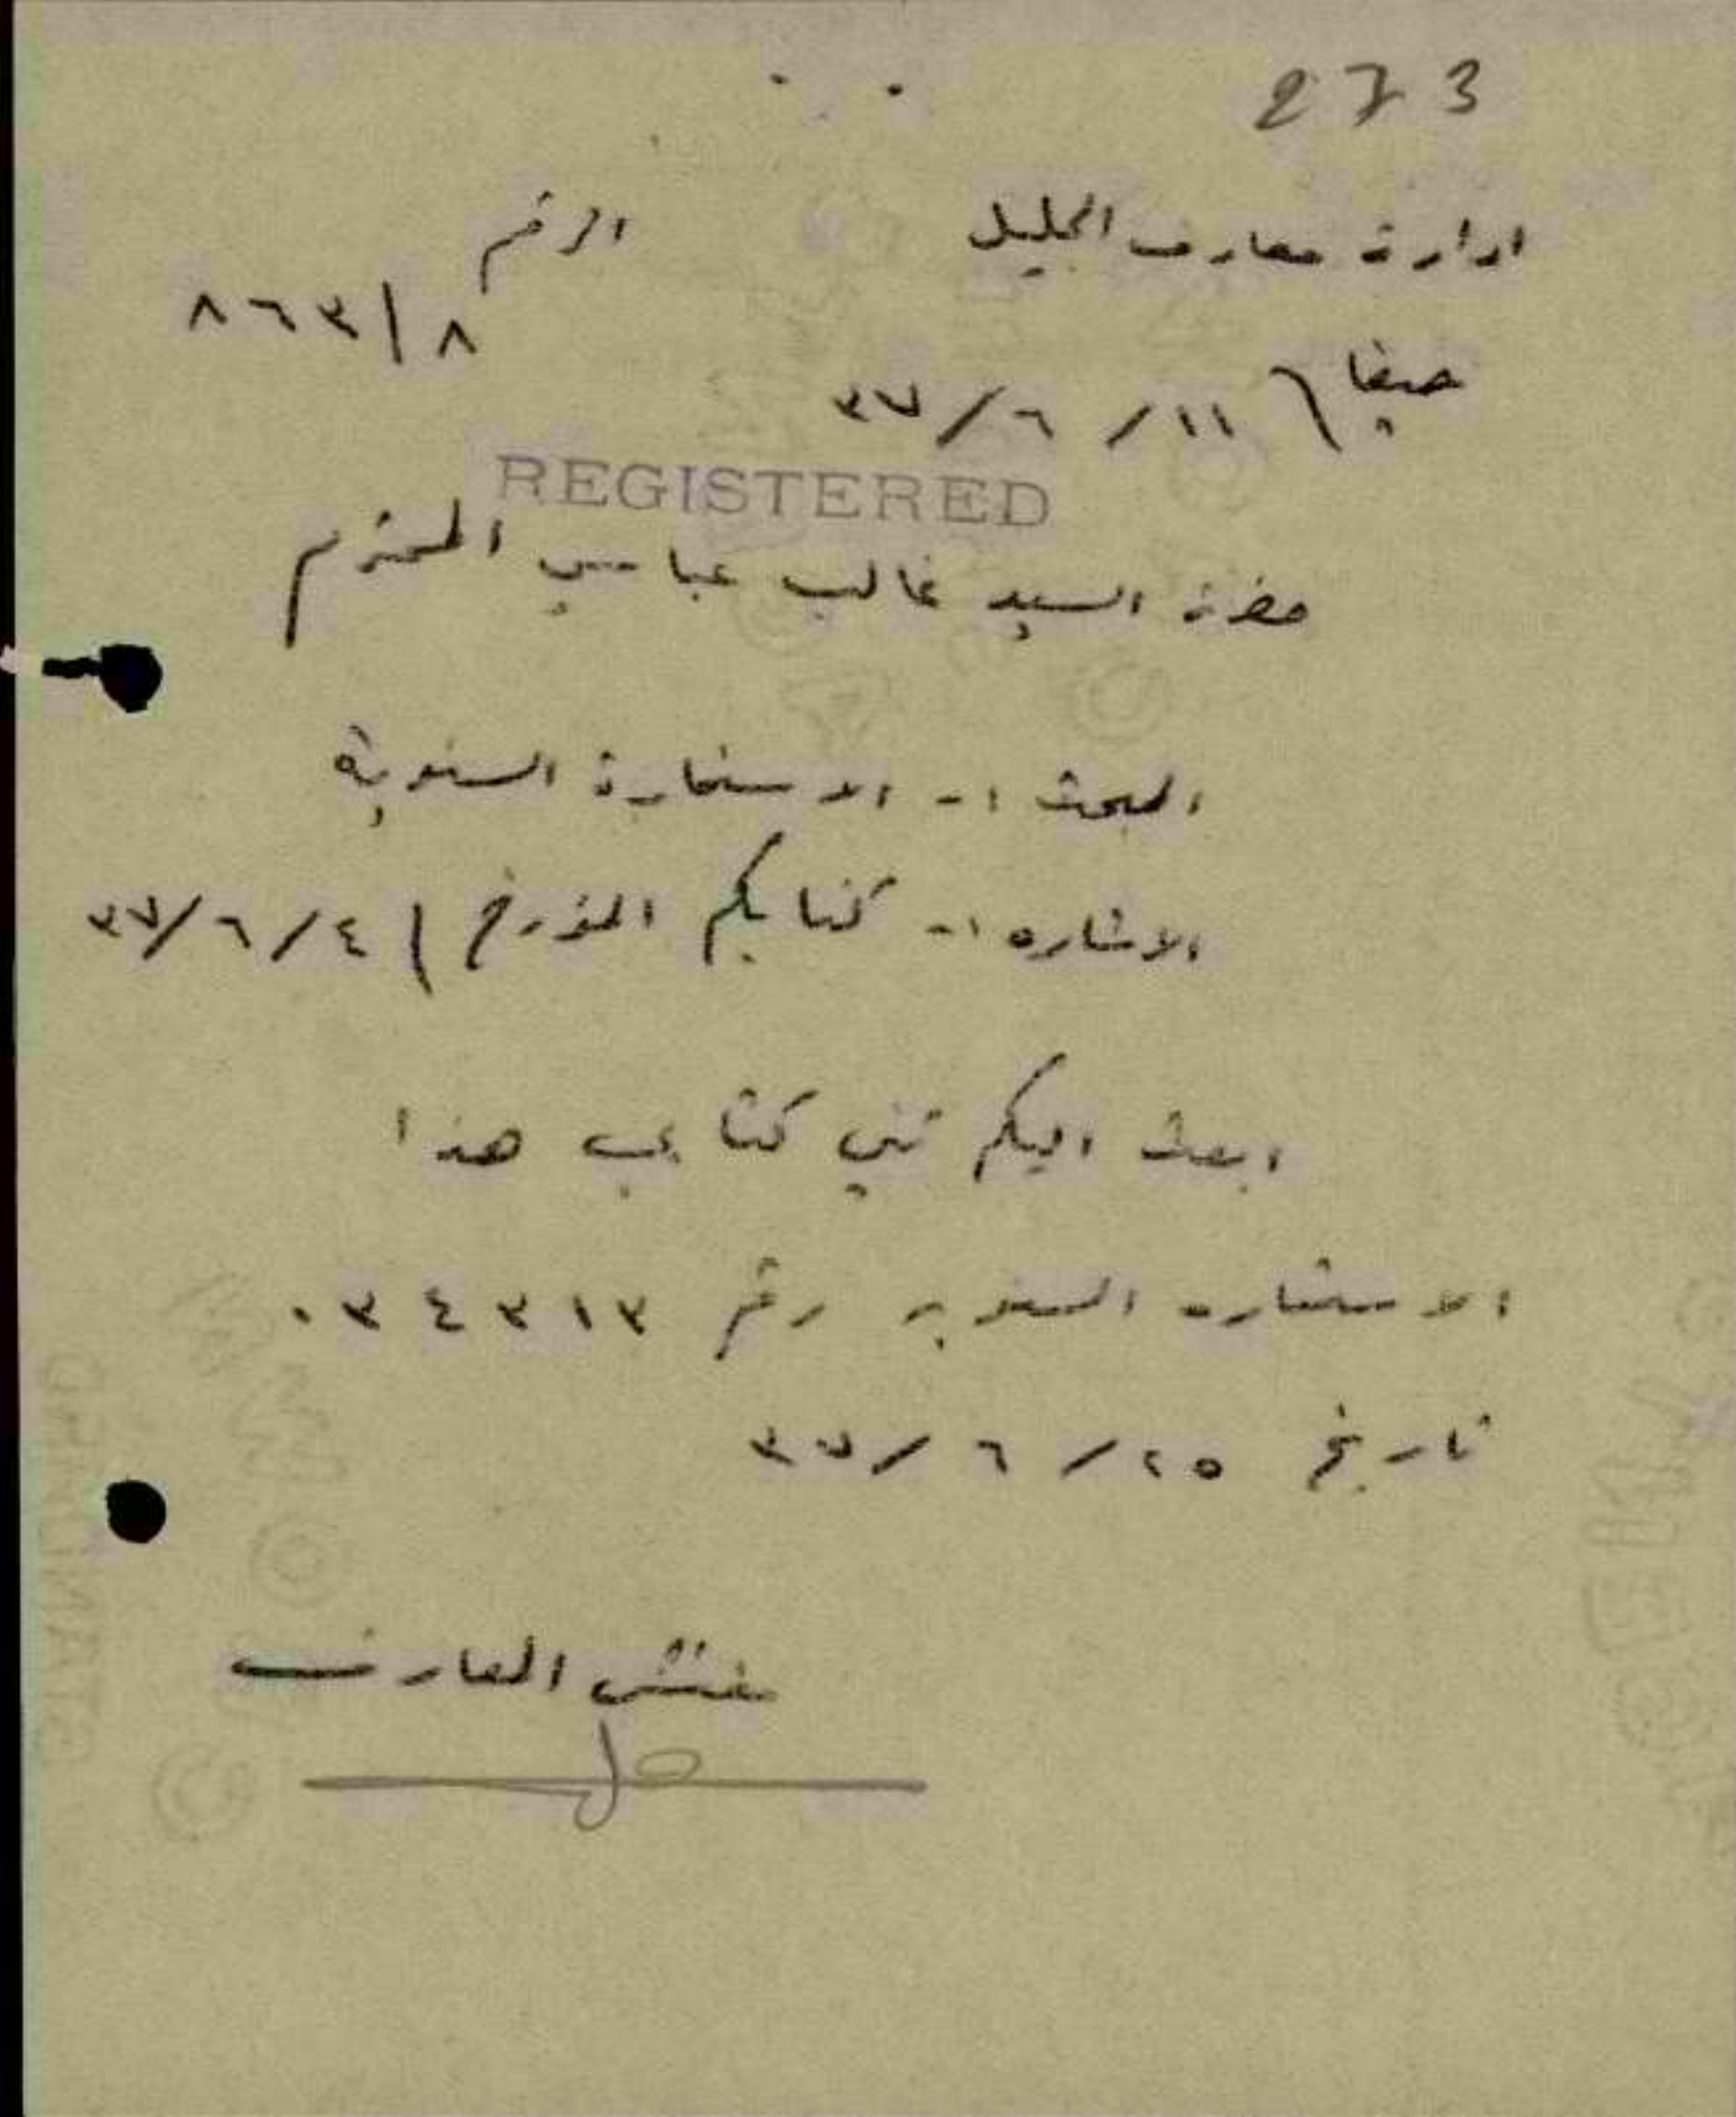 273
ادارة معارف الجليل الرقم
٨/٨٦٣
حيفا ١١/ ٦ /٣٧
REGISTERED
حضرة السيد غالب عباسي المحترم
المبحث :- الاستمارة السنوية
الاشاره :- كتابكم المؤرخ ٤/٦/٣٧
ابعث اليكم طي كتابي هذا
الاستماره السنويه رقم ٠٣٤٣١٣
تاريخ ٢٥/ ٦ /٣٧
مفتش المعارف